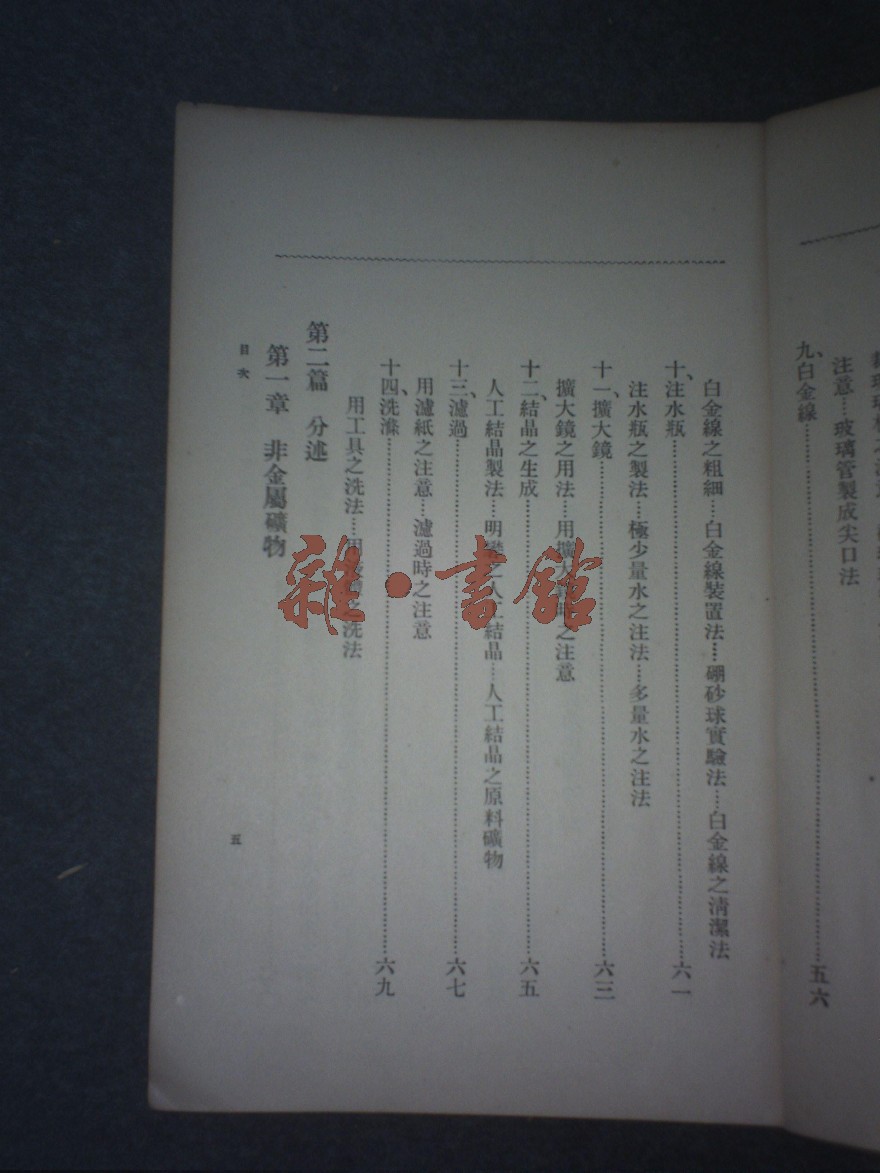 注意…玻璃管製成尖口法
九、白金線……五六
白金線之粗細…白金線裝置法…硼砂球實驗法…白金線之淸潔法
十、注水瓶……六一
注水瓶之製法…極少量水之注法…多量水之注法
十一、擴大鏡……六三
擴大鏡之用法…用擴大鏡時之注意
十二、結晶之生成……六五
人工結晶製法…明礬之人工結晶…人工結晶之原料礦物
十三、濾過……六七
用濾紙之注意…濾過時之注意
十四、洗滌……六九
用工具之洗法…用 之洗法
第二篇 分述
第一章 非金屬礦物
目次
五
雜·書館